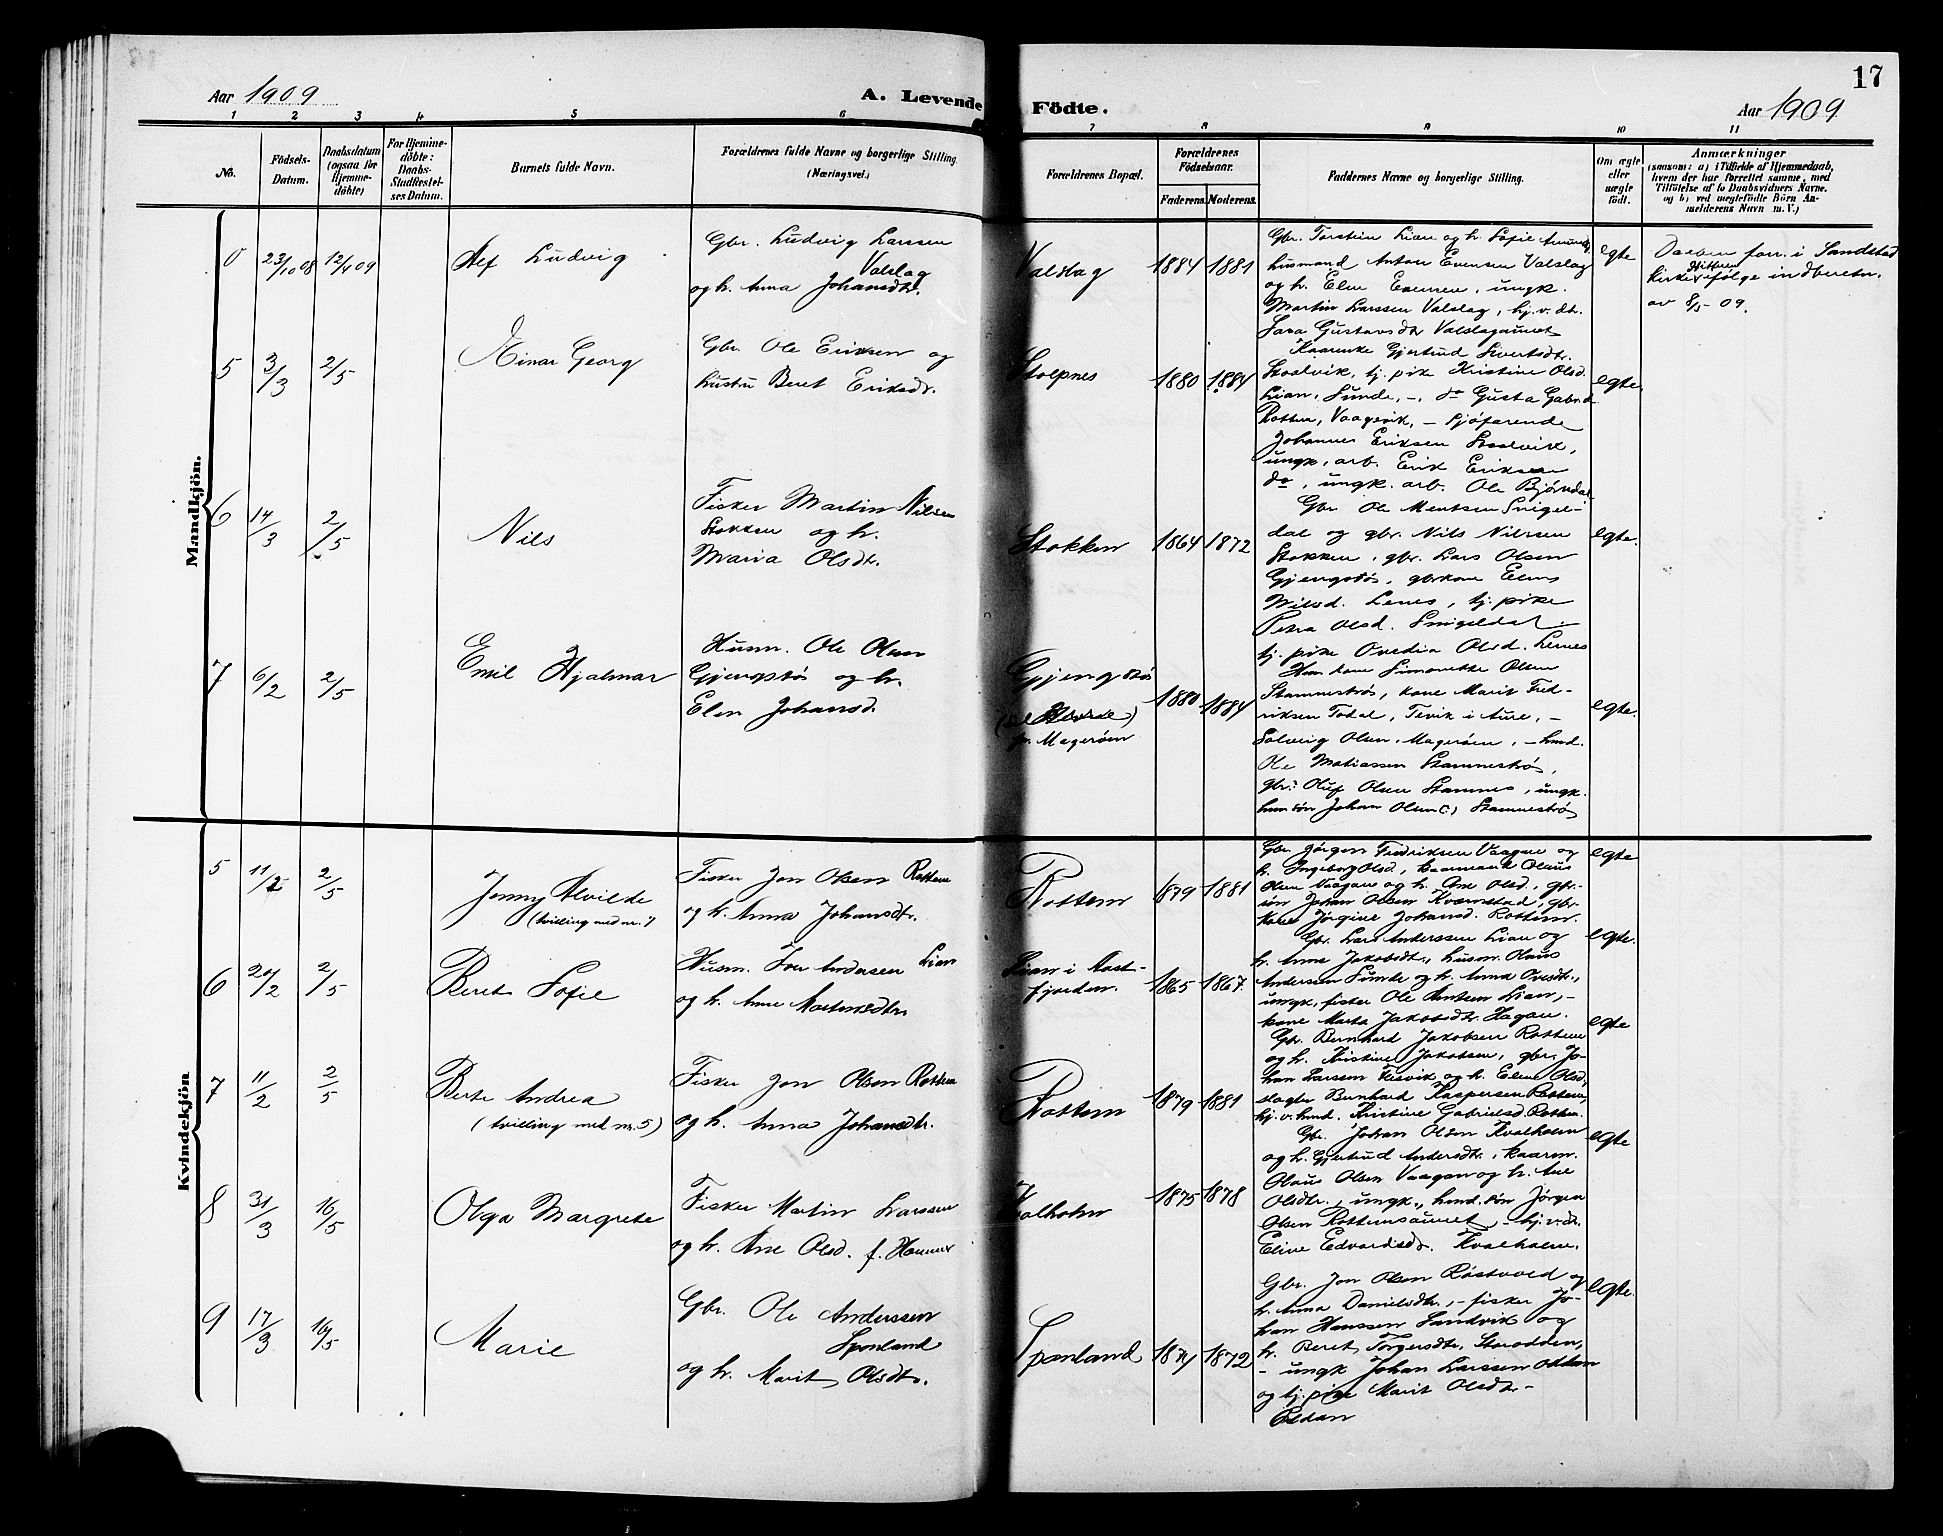 17
Aar 1909
A. Levende Födte.
Aar 1909
1 2 3 4 5 6 7 8 9 10 11
No.
Födsels-
Datum.
Daabsdatum
(ogsaa för
Hjemme-
döbte)
For Hjemme-
döbte:
Daabs-
Stadfæstel-
ses Datum.
Burnets fulde Navn.
Forældrenes fulde Navne og borgerlige Stilling.
(Næringsvei.)
Forældrenes Bopæl.
Forældrenes
Födselsaar.
Faderens. Moderens.
Faddernes Navne og borgerlige Stilling.
Om ægte
eller
uægte
födt.
Anmærkninger
(saasom: a) i Tilfælde af Hjemmedaab,
hvem der har forrettet samme, med
Tilföielse af to Daabsvidners Navne.
og b) ved uægtefödte Börn An-
melderens Navn m. V.)
Mandkjön.
0
23/10 08
12/4 09
Alf Ludvig
Gbr. Ludvig Larssen
Valslag
og h. Anna Johansdtr.
Valslag
1884
1881
Gbr. Torstein Lian og h. Sofie
husmand Anton Evensen Valslag
og h. Elen Evensen, ungk.
Martin Larssen Valslag, hj.v. dtr.
Sara Gustavsdtr Valslagaunet
egte
Daaben forr. i Sandstad
kirke Hitteren ifølge indberetn.
av 8/5 - 09.
5
3/3
2/5
Einar Georg
Gbr. Ole Eriksen og
hustru Beret Eriksdr.
Stolpnes
1880
1884
Kaarenke Gjertrud Sivertsdtr.
Staalvik, tj. pike Kristine Olsd.
Lian, Sunde, -, do Gusta Gabr.d.
Rotten, Vaagevik, - sjøfarende
Johannes Eriksen Staalvik,
ungk. arb. Erik Eriksen
do, ungk. arb. Ole Bjørndal
egte.
6
14/3
2/5
Nils
Fisker Martin Nilsen
Stokken og h.
Maria Olsdtr.
Stokken
1864
1872
Gbr Ole Mentsen Snigel-
dal og gbr. Nils Nilssen
Stokken, gbr. Lars Olsen
Gjengstøs, gbrkone Elens
Nilsd. Lenes, tj. pike
Petra Olsd. Snigeldal.
egte.
7
6/2
2/5
Emil Hjalmar
Husm. Ole Olsen
Gjengstøs og h.
Elen Johansd.
Gjengstøs
Magerøen
1880
1884
tj. pike Ovedia Olsd. Lernes
Hm. kone Simonette Olsen
Stamnestrøs, kone Marit Fred-
riksen Todal, Tevik i Aure, -
Solveig Olsen, Magerøen, - husd.
Ole Matiassen Stamnestrøs,
gbr. Oluf Olsen Stamnes, ungk.
husm søn Johan Olsen Stamnestrø
egte.
Kvindekjön
5
11/2
2/5
Jenny Alvilde
(tvilling med nr. 7
Fisker Jon Olsen Rottem
og h. Anna Johansdtr.
Rottem
1879
1881
Gbr Jørgen Fredriksen Vaagan og
h. Ingeborg Olsd., kaarmand Olaus
Olsen Vaagan og h. Ane Olsd., gbr-
søn Johan Olsen Kvernstad, gbr.
kone Jørgine Johansd. Rottem.
egte
6
20/2
2/5
Beret Sofie
Husm. Iver Andersen Lian
og h. Anne Martinsdtr.
Lian i Aast-
fjorden.
1865
1867.
Gbr. Lars Anderssen Lian og
h. Anne Jakobsdtr., husm. Olaus
Andersen Sunde og h. Anna Ovedtr.,
ungk. fisker Ole Arntsen Lian, -
kone Marta Jakobsdtr. Hagan.
egte.
7
11/2
2/5
Berte Andrea
(tvilling med nr. 5)
Fisker Jon Olsen Rottem
og h. Anna Johansdtr.
Rottem
1879
1881
Gbr. Bernhard Jakobsen Rottem
og h. Kristine Jakobsen, gbr. Jo-
han Larssen Tusvik og h. Eline Olsd.
slagter Bernhard Kaspersen Rottem,
hj.v. hmd. Kristine Gabrielsd. Rottem.
egte
8
31/3
16/5
Olga Margrete
Fisker Martin Larssen
og h. Ane Olsd. f. Hammer
Kvalholm
1875
1878
Gbr. Johan Olsen Kvalholm
og h. Gjertrud Andersdtr., kaarm.
Olaus Olsen Vaagan og h. Ane
Olsdtr., ungk., hmd. søn Jørgen
Olsen Rottemsaunet, - hj.v.dt.
Eline Edvardsdt. Kvalholm.
egte
9
17/3
16/5
Marie
Gbr. Ole Anderssen
Sponland
og h. Marit Olsdtr.
Sponland
1871
1872
Gbr. Jon Olsen Røstvold og
h. Anna Danielsdtr., - fisker Jo-
han Hanssen Sandvik og
h. Beret Torgersdtr, Storodden,
- ungk Johan Larssen
og tj. pike Marit Olsdtr -
Eldan
egte.